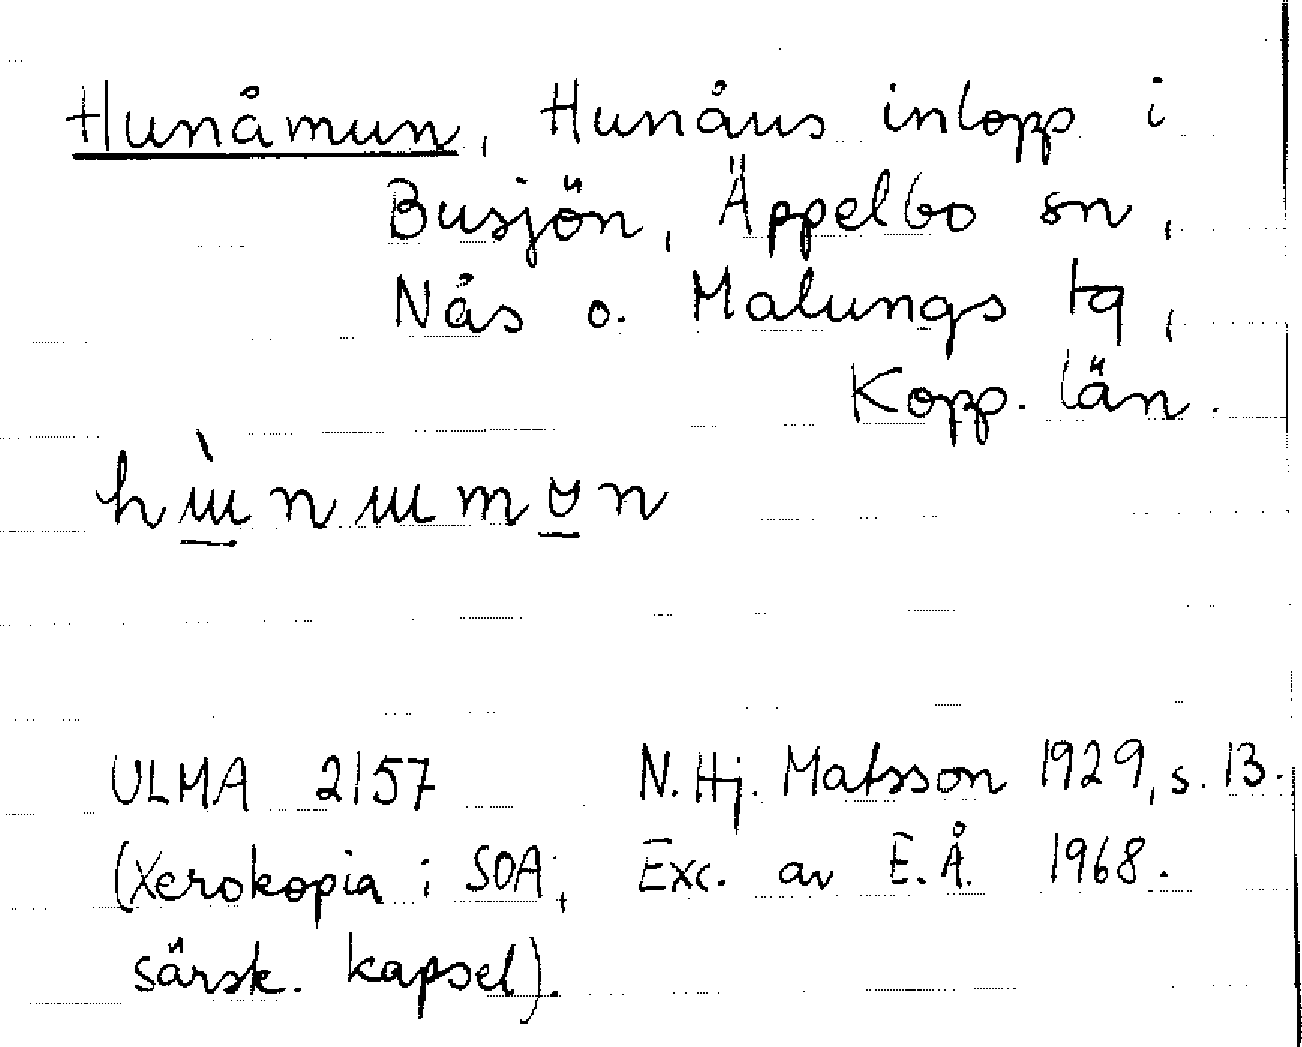 Hunåmun, Hunåns inlopp i
Busjön, Äppelbo sn,
Nås o. Malungs tg,
Kopp. län.
hɯ̱̀nɯmʊ̱n
ULMA 2157 N. Hj. Matsson 1929, s. 13.
(Xerokopia i SOA, Exc. av E.Å. 1968.
särsk. kapsel).